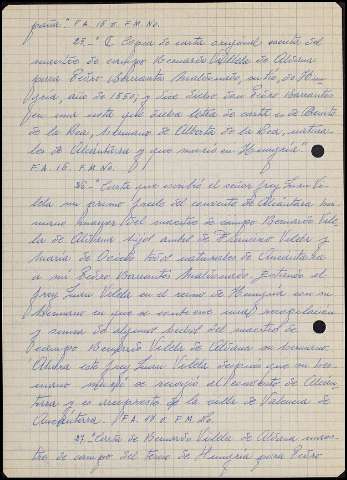 paña". F.A. 15 v. F.M. No.
25.-"C Copia de carta original escrita del
maestro de campo Bernardo Villela de Aldana
para Pedro Barrantes Maldonado, entró, de Hun-
gria, año de 1550; y dice dicho don Pedro Barrantes
en una nota que dicha letra de carta es de Benito
de la Rea, hermano de Alberto de la Rea, natura-
les de Alcántara y que murió en Hungría".
F.A. 15. F.M. No.
26.-"Carta que escribió el señor frey Juan Vi-
lela mi primo fraile del convento de Alcántara her-
mano mayor del maestro de campo Bernardo Ville-
la de Aldana hijos ambos de Francisco Villela y
Maria de Ocicho todos naturales de
a mi Pedro Barrantes Maldonado, estando el
frey Juan Villela en el reino de Hungría con su
hermano en que se contiene una recopilacion
y suma de algunos hechos del maestro de
campo Bernardo Villela de Aldana su hermano.
Ahora este frey Juan Villela después que su her-
mano murió se recogió al convento de Alcán-
tara y es arcipreste de la villa de Valencia de
Alcántara. F.A. 19 v. F.M. No.
27.-"Carta de Bernardo Villela de Aldana maes-
tro de campo del tercio de Hungría para Pedro